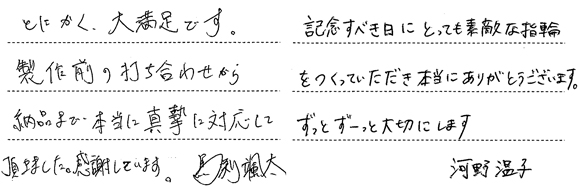 とにかく、大満足です。
製作前の打ち合わせから
納品まで本当に真摯に対応して
頂きました。感謝しています。
記念すべき日にとっても素敵な指輪
をつくっていただき本当にありがとうございます。
ずっとずーっと大切にします
河野温子